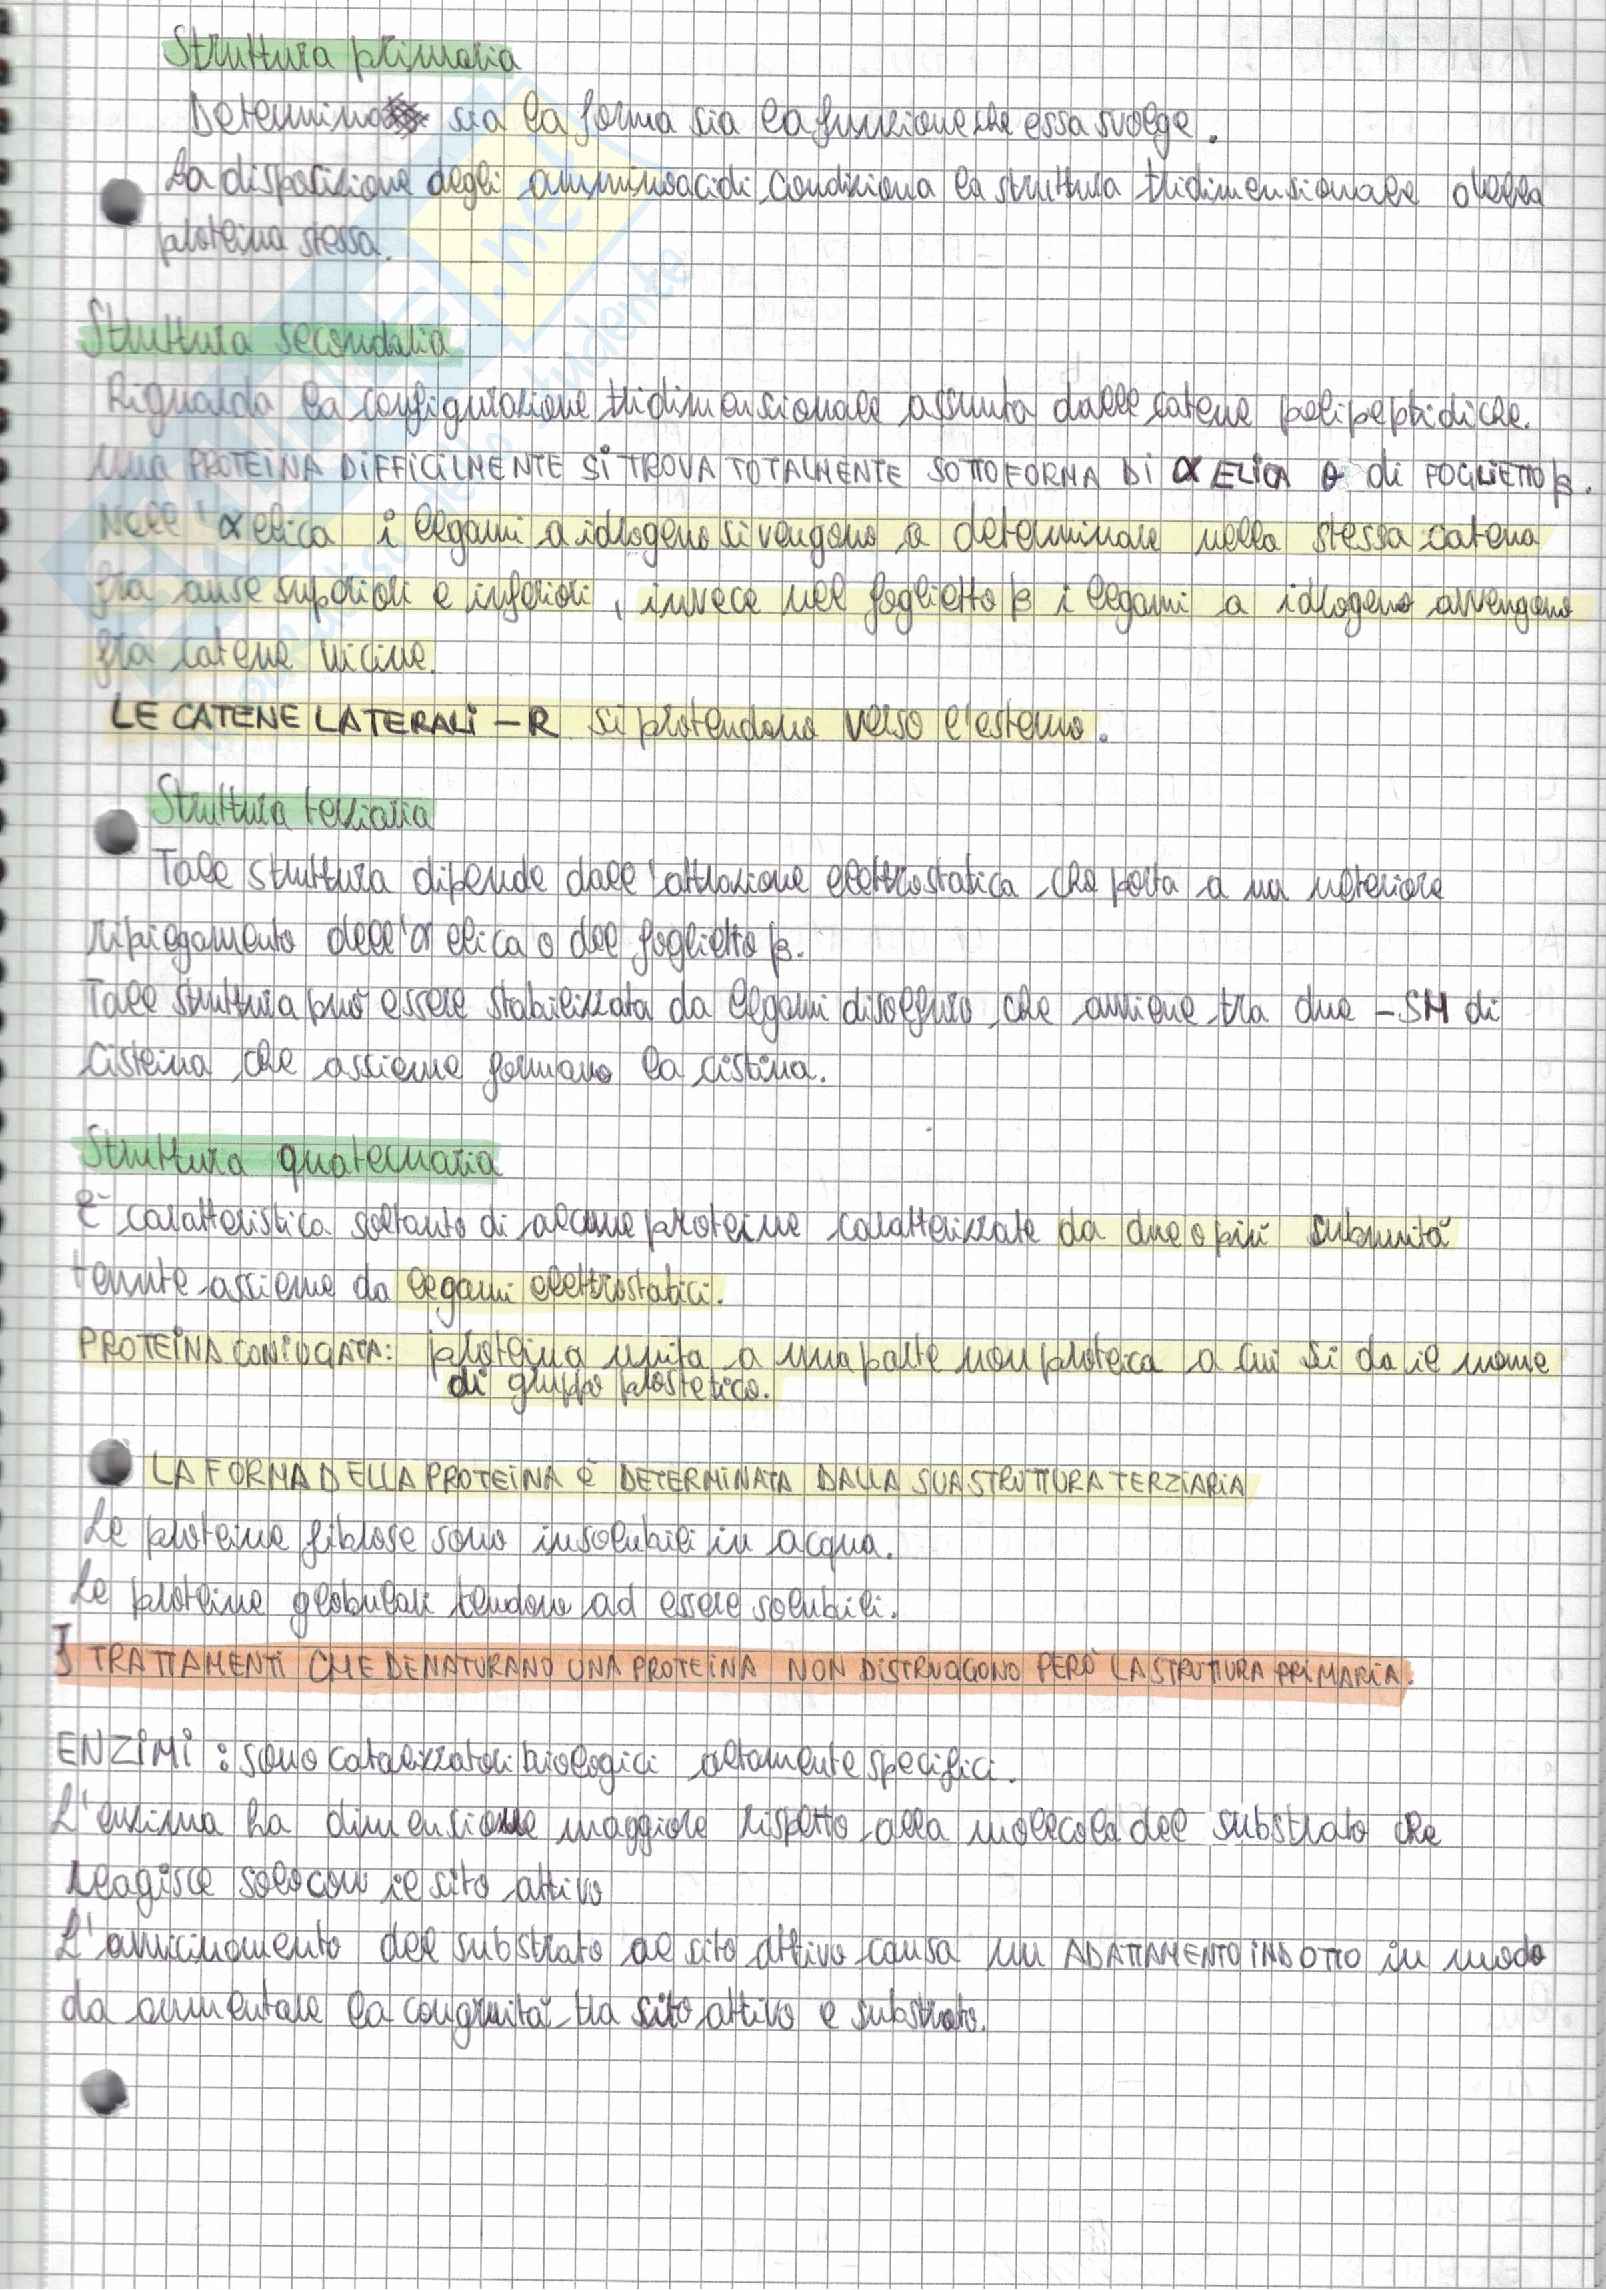 Struttura primaria
Determina sia la forma sia la funzione che essa svolge.
La disposizione degli amminoacidi condiziona la struttura tridimensionale della
proteina stessa.
Struttura secondaria
Riguarda la configurazione tridimensionale assunta dalle catene polipeptidiche.
Una PROTEINA DIFFICILMENTE SI TROVA TOTALMENTE SOTTOFORMA DI α ELICA o di FOGLIETTO β.
Nell'α elica i legami a idrogeno si vengono a determinare nella stessa catena
fra anse superiori e inferiori, invece nel foglietto β i legami a idrogeno avvengono
fra catene vicine.
LE CATENE LATERALI -R si protendono verso l'esterno.
Struttura terziaria
Tale struttura dipende dall'attrazione elettrostatica che porta a un ulteriore
ripiegamento dell'α elica o del foglietto β.
Tale struttura può essere stabilizzata da legami disolfuro che avviene tra due -SH di
cisteina che assieme formano la cistina.
Struttura quaternaria
È caratteristica soltanto di alcune proteine caratterizzate da due o più subunità
tenute assieme da legami elettrostatici.
PROTEINA CONIUGATA: proteina unita a una parte non proteica a cui si da il nome
di gruppo prostetico.
LA FORMA DELLA PROTEINA È DETERMINATA DALLA SUA STRUTTURA TERZIARIA
Le proteine fibrose sono insolubili in acqua.
Le proteine globulari tendono ad essere solubili.
I TRATTAMENTI CHE DENATURANO UNA PROTEINA NON DISTRUGGONO PERÒ LA STRUTTURA PRIMARIA.
ENZIMI: sono catalizzatori biologici altamente specifici.
L'enzima ha dimensione maggiore rispetto alla molecola del substrato che
reagisce solo con il sito attivo
L'avvicinamento del substrato al sito attivo causa un ADATTAMENTO INDOTTO in modo
da aumentare la congruità tra sito attivo e substrato.